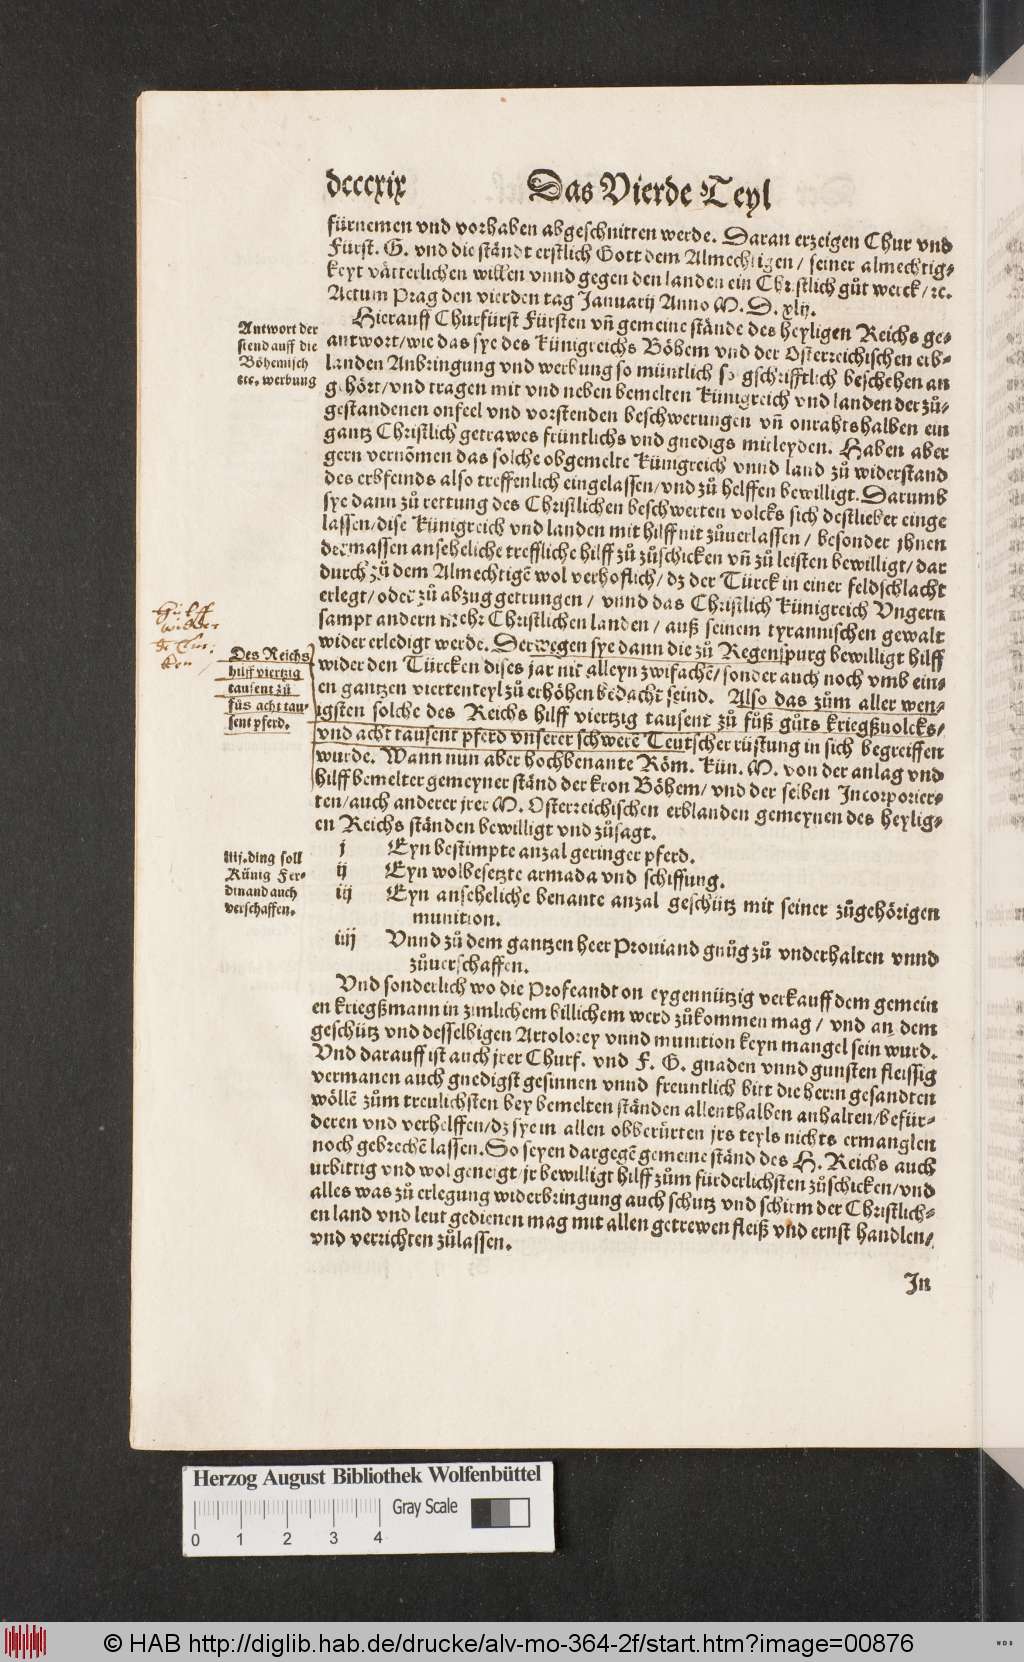 dcccxix Das Vierde Teyl
fürnemen vnd vorhaben abgeschnitten werde. Daran erzeigen Chur vnd
Fürst. G. vnd die ständt erstlich Gott dem Almechtigen / seiner almechtig-
keyt vätterlichen willen vnnd gegen den landen ein Christlich gůt werck / ꝛc.
Actum Prag den vierden tag Januarij Anno M. D. xlij.
Hierauff Churfürst Fürsten vñ gemeine stände des heyligen Reichs ge-
antwort/wie das sye des Künigreichs Böhem vnd der Osterreichischen erb-
landen Anbringung vnd werbung so müntlich so gschrifftlich beschehen an
gehört/vnd tragen mit vnd neben bemelten Künigreich vnd landen der zů-
gestandenen onfeel vnd vorstenden beschwerungen vñ onrahtshalben ein
gantz Christlich getrawes früntlichs vnd gnedigs mitleyden. Haben aber
gern vernõmen das solche obgemelte Künigreich vnnd land zů widerstand
des erbfeinds also treffenlich eingelassen/vnd zů helffen bewilligt. Darumb
sye dann zů rettung des Christlichen beschwerten volcks sich destlieber einge
lassen/dise Künigreich vnd landen mit hilff nit zůuerlassen / besonder jhnen
dermassen anseheliche treffliche hilff zů zůschicken vñ zů leisten bewilligt/dar
durch zů dem Almechtigẽ wol verhoflich/dz der Türck in einer feldschlacht
erlegt/oder zů abzug getrungen / vnnd das Christlich Künigreich Vngern
sampt andern mehr Christlichen landen / auß seinem tyrannischen gewalt
wider erledigt werde. Derwegen sye dann die zů Regenspurg bewilligt hilff
wider den Türcken dises jar nit alleyn zwifachẽ/sonder auch noch vmb ein-
en gantzen viertenteyl zů erhöhen bedacht seind. Also das zům aller wen-
igsten solche des Reichs hilff viertzig tausent zů fůß gůts kriegßuolcks/
vnd acht tausent pferd vnserer schwerẽ Teutscher rüstung in sich begreiffen
wurde. Wann nun aber hochbenante Röm. Kün. M. von der anlag vnd
hilff bemelter gemeyner ständ der kron Böhem/ vnd der selben Incorporier-
ten/auch anderer jrer M. Osterreichischen erblanden gemeynen des heylig-
en Reichs ständen bewilligt vnd zůsagt.
j Eyn bestimpte anzal geringer pferd.
ij Eyn wolbesetzte armada vnd schiffung.
iij Eyn anseheliche benante anzal geschütz mit seiner zůgehörigen
munition.
iiij Vnnd zů dem gantzen heer Prouiand gnůg zů vnderhalten vnnd
zůuerschaffen.
Vnd sonderlich wo die Profeandt on eygennützig verkauff dem gemein
en kriegßmann in zimlichem billichem werd zůkommen mag / vnd an dem
geschütz vnd desselbigen Artolorey vnnd munition keyn mangel sein wurd.
Vnd darauff ist auch jrer Churf. vnd F. G. gnaden vnnd gunsten fleissig
vermanen auch gnedigst gesinnen vnnd freuntlich bitt die herrn gesandten
wöllẽ zům treulichsten bey bemelten ständen allenthalben anhalten/befür-
deren vnd verhelffen/dz sye in allen obberürten jrs teyls nichts ermanglen
noch gebrechẽ lassen. So seyen dargegẽ gemeine ständ des H. Reichs auch
vrbittig vnd wol geneigt/jr bewilligt hilff zům fürderlichsten zůschicken/vnd
alles was zů erlegung widerbringung auch schutz vnd schirm der Christlich-
en land vnd leut gedienen mag mit allen getrewen fleiß vnd ernst handlen/
vnd verrichten zůlassen.
In
Antwort der
stend auff die
Böhemisch
ꝛc. werbung
Hülff
wider
Des Reichs
hilff viertzig
tausent zů
fůs acht tau-
sent pferd.
iiij. ding soll
Künig Fer-
dinand auch
verschaffen.
Herzog August Bibliothek Wolfenbüttel
Gray Scale
0 1 2 3 4
© HAB http://diglib.hab.de/drucke/alv-mo-364-2f/start.htm?image=00876